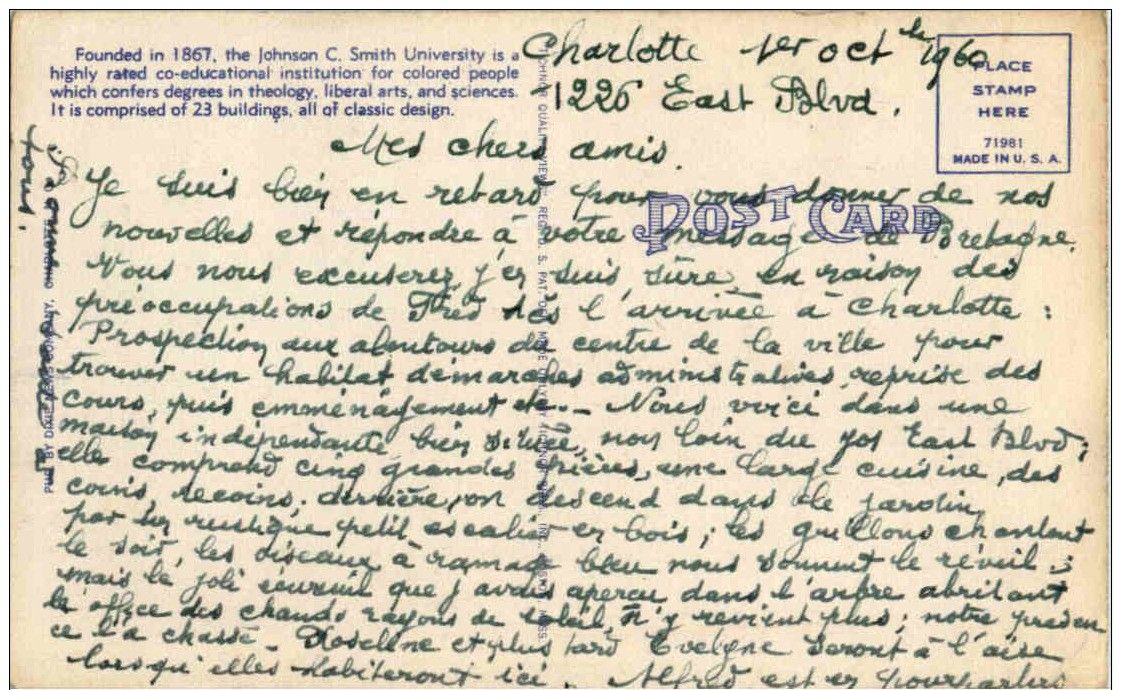 Founded in 1867, the Johnson C. Smith University is a
highly rated co-educational institution for colored people
which confers degrees in theology, liberal arts, and sciences.
It is comprised of 23 buildings, all of classic design.
Charlotte 1er octbre 1960
1226 East Blvd.
PLACE
STAMP
HERE
71981
MADE IN U. S. A.
POST CARD
Mes chers amis.
Je suis bien en retard pour vous donner de nos
nouvelles et répondre à votre message de Bretagne.
Vous nous excuserez, j'en suis sûre, en raison des
préoccupations de Fred dès l'arrivée à Charlotte :
Prospection aux alentours du centre de la ville pour
trouver un habitat démarches administratives, reprise des
cours, puis emménagement etc.. - Nous voici dans une
maison indépendante bien située, non loin du 908 East Blvd;
elle comprend cinq grandes pièces, une large cuisine, des
coins, recoins; derrière, on descend dans le jardin
par un rustique petit escalier en bois; les grillons chantent
le soir, les oiseaux à ramage bleu nous donnent le réveil;
mais le joli écureuil que j'avais aperçu dans l'arbre abritant
l'office des chauds rayons de soleil, n'y revient plus; notre présen
ce l'a chassé. Roseline et plus tard Evelyne seront à l'aise
lorsqu'elles habiteront ici. Alfred est en pourparlers
tous.